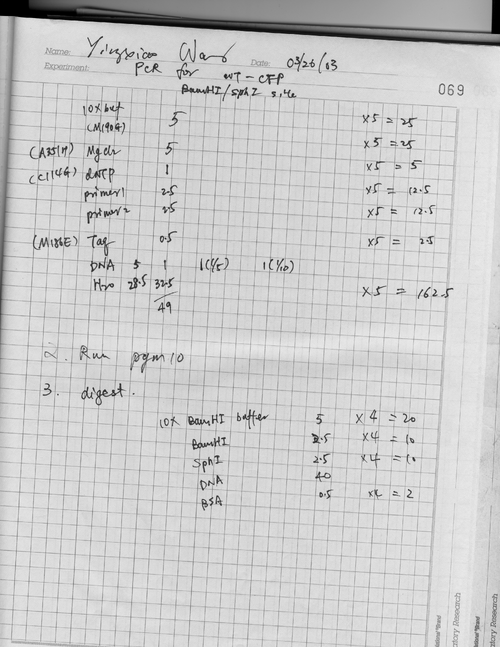 Name: Yingxiao Wang Date: 03/26/03
Experiment: PCR for WT-CFP
BamHI/SphI site
069
10x buf 5 x5 = 25
(M190G)
(A351H) Mgcl2 5 x5 = 25
(C114G) dNTP 1 x5 = 5
primer1 2.5 x5 = 12.5
primer2 2.5 x5 = 12.5
(M186E) Taq 0.5 x5 = 2.5
DNA 5 1 1(1/5) 1(1/10)
H2O 28.5 32.5 x5 = 162.5
49
2. Run pgm 10
3. digest.
10x BamHI buffer 5 x4 = 20
BamHI 2.5 x4 = 10
SphI 2.5 x4 = 10
DNA 40
BSA 0.5 x4 = 2